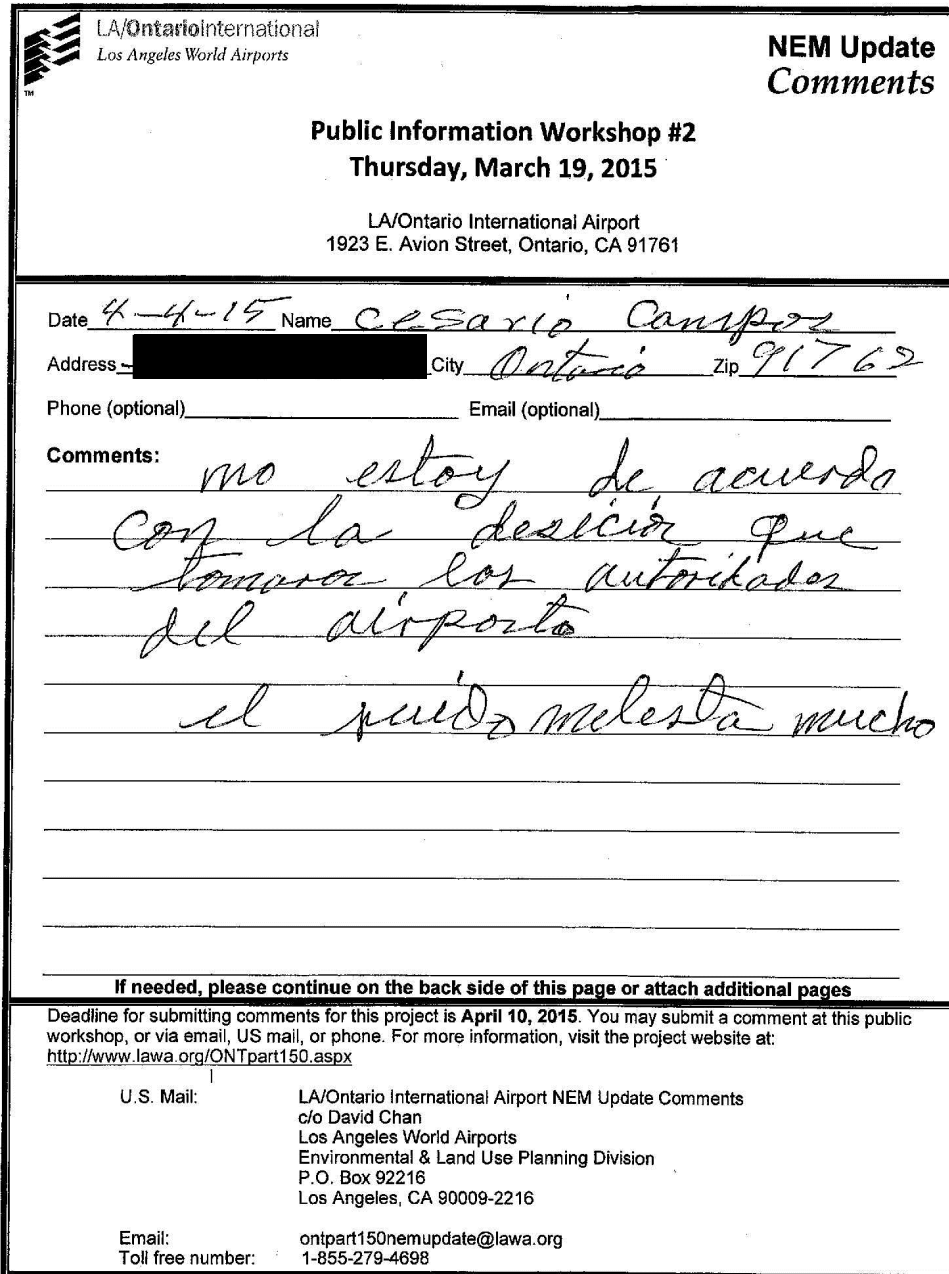 LA/OntarioInternational
Los Angeles World Airports
TM
NEM Update
Comments
Public Information Workshop #2
Thursday, March 19, 2015
LA/Ontario International Airport
1923 E. Avion Street, Ontario, CA 91761
Date 4-4-15 Name Cesario Campos
Address City Ontario Zip 91762
Phone (optional) Email (optional)
Comments:
no estoy de acuerdo
con la desicion que
tomaron las autoridades
del airporto
el ruido molesta mucho
If needed, please continue on the back side of this page or attach additional pages
Deadline for submitting comments for this project is April 10, 2015. You may submit a comment at this public
workshop, or via email, US mail, or phone. For more information, visit the project website at:
http://www.lawa.org/ONTpart150.aspx
U.S. Mail: LA/Ontario International Airport NEM Update Comments
c/o David Chan
Los Angeles World Airports
Environmental & Land Use Planning Division
P.O. Box 92216
Los Angeles, CA 90009-2216
Email: ontpart150nemupdate@lawa.org
Toll free number: 1-855-279-4698